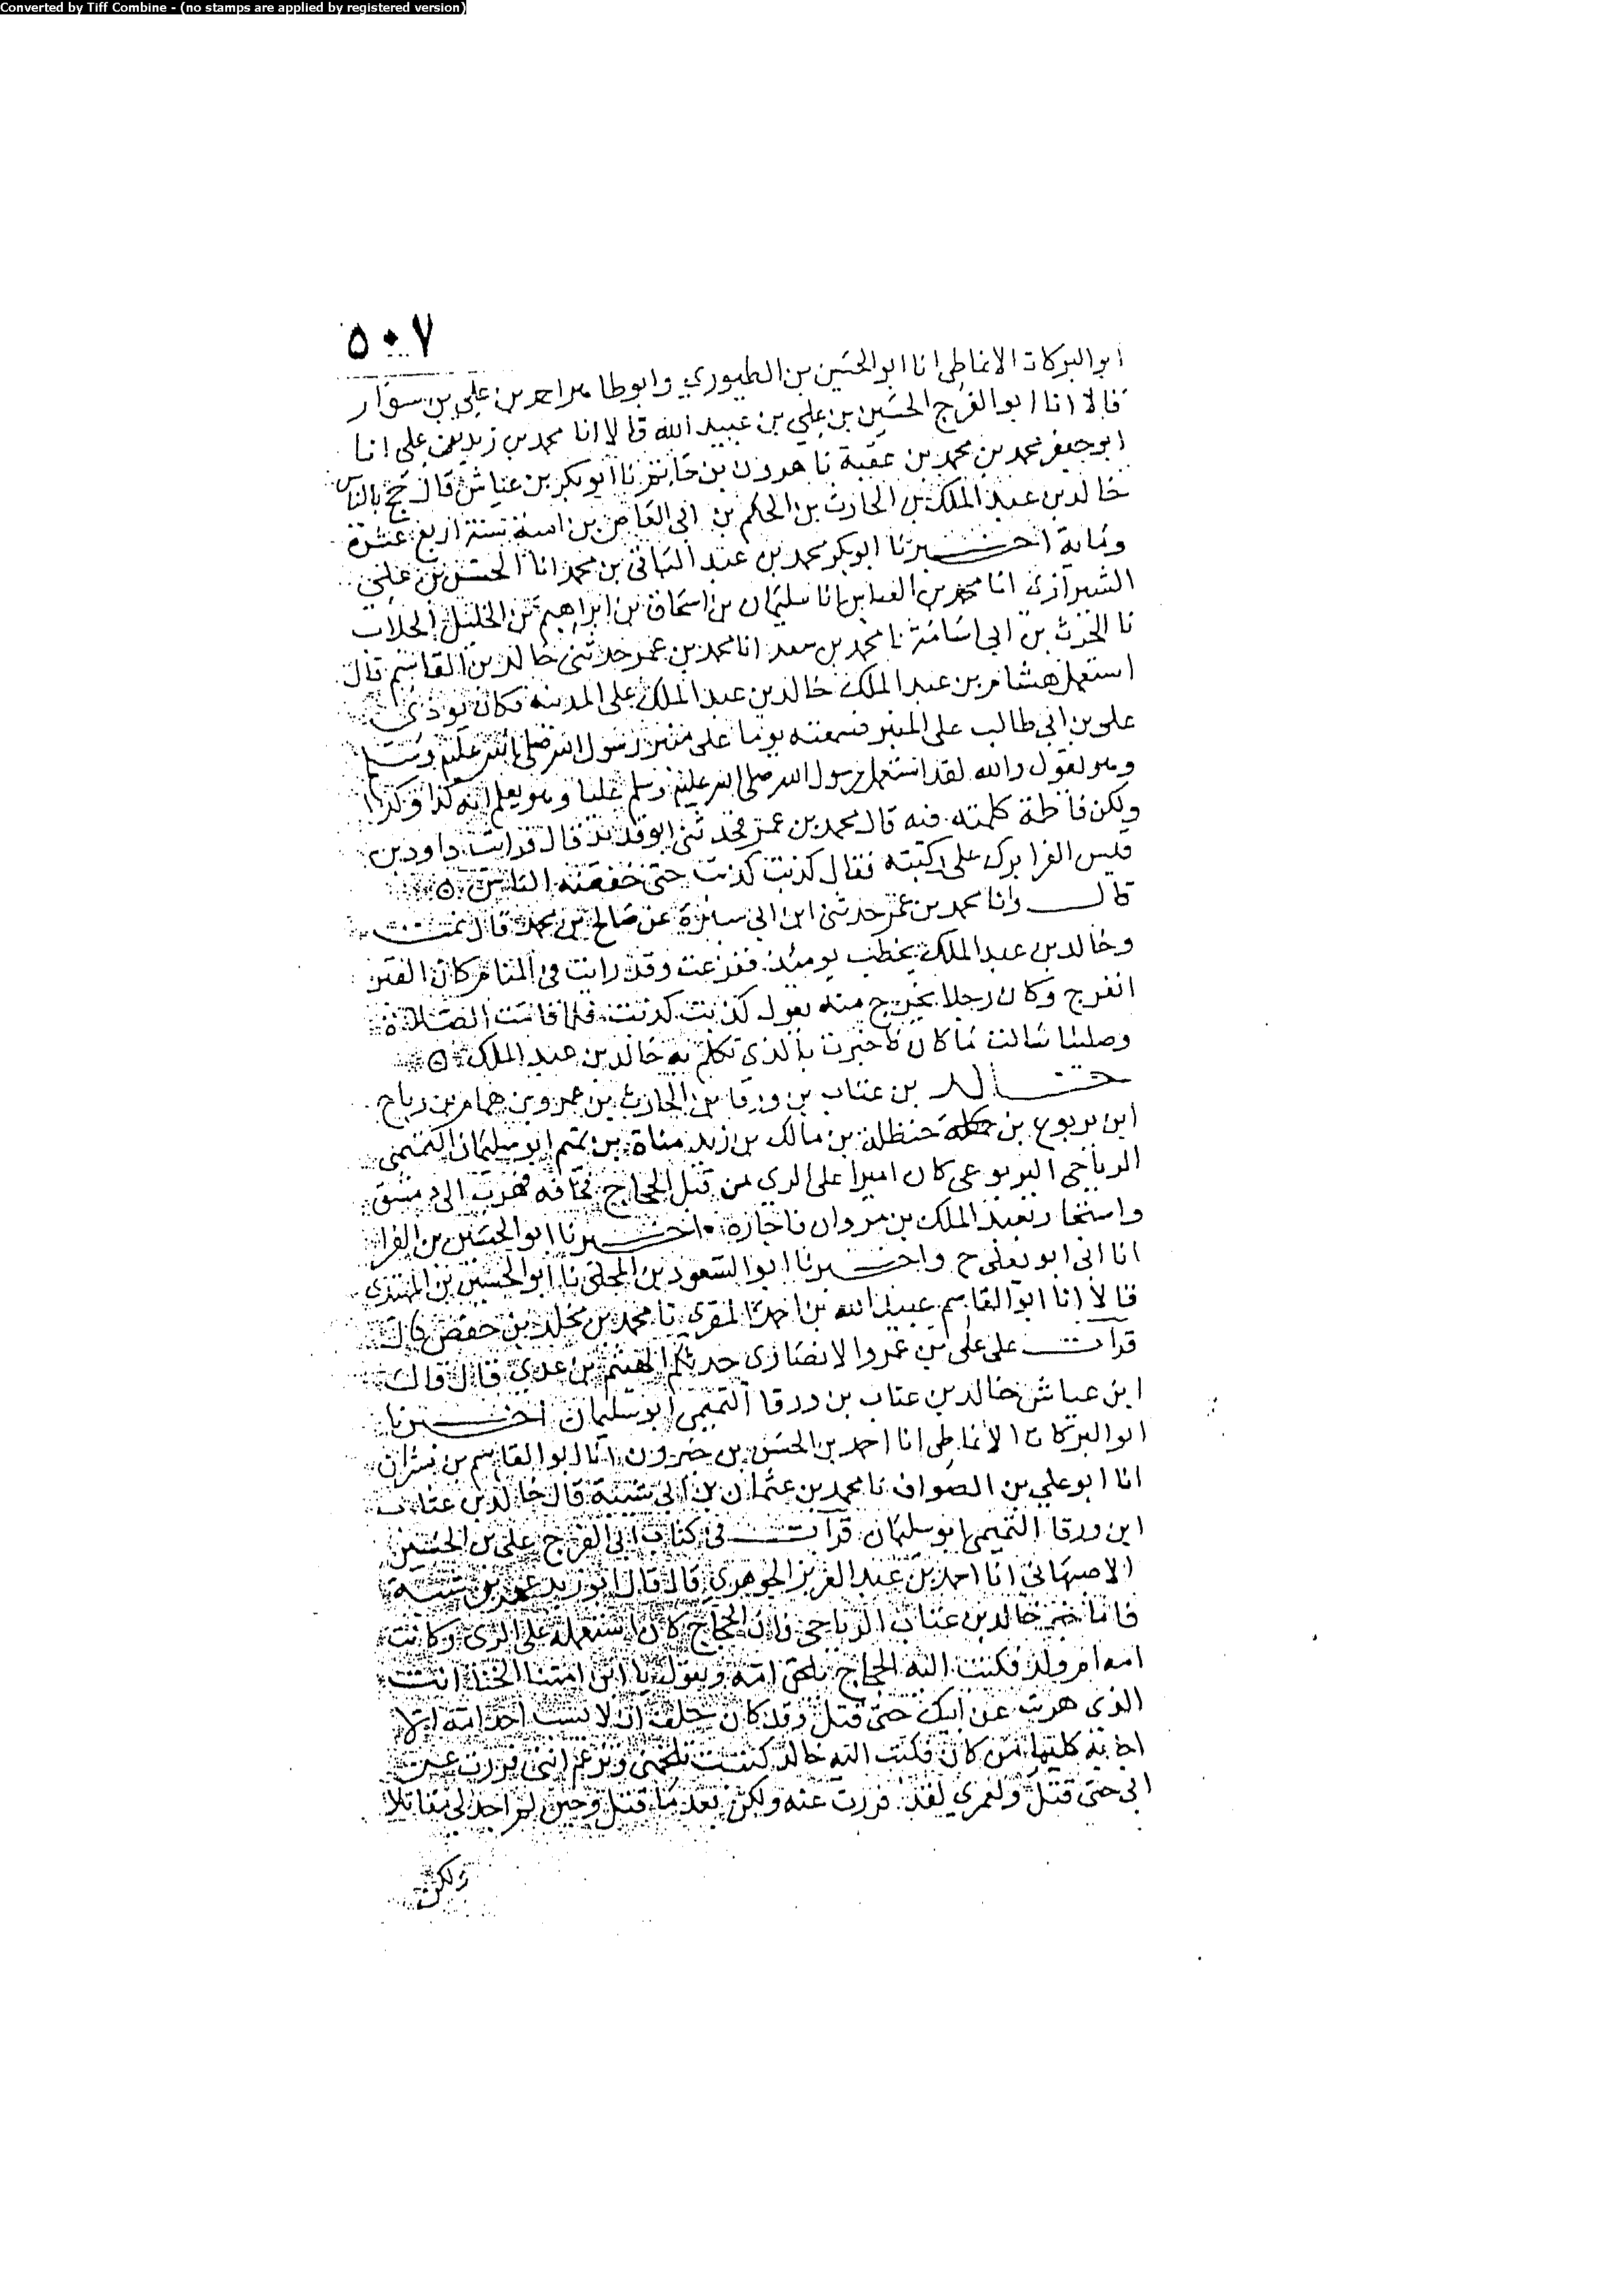 Converted by Tiff Combine - (no stamps are applied by registered version)
٥٠٧
ابو البركات الانماطى انا ابو الحسين بن الطيوري وابو طاهر احمد بن علي بن سوار
قالا انا ابو الفرج الحسين بن علي بن عبيد الله قالا انا محمد بن زيد بن علي انا
ابو جعفر محمد بن محمد بن عقبة نا هرون بن حاتم نا ابو بكر بن عياش قال حج بالناس
خالد بن عبد الملك بن الحارث بن الحكم بن ابى العاص بن امية سنة اربع عشرة
ومايه اخبرنا ابو بكر محمد بن عبد الباقى بن محمد انا الحسن بن علي
الشيرازى انا محمد بن العباس انا سليمان بن اسحاق بن ابراهيم بن الخليل الجلاب
نا الحرث بن ابي اسامة نا محمد بن سعد انا محمد بن عمر حدثنى خالد بن القاسم قال
استعمل هشام بن عبد الملك خالد بن عبد الملك على المدينه فكان يوذى
على بن ابى طالب على المنبر فسمعته يوما على منبر رسول الله صلى الله عليه وسلم
وهو يقول والله لقد استعمل رسول الله صلى الله عليه وسلم عليا وهو يعلم انه كذا وكذا
ولكن فاطمة كلمته فيه قال محمد بن عمر فحدثنى ابو قديد قال فرايت داود بن
قيس الفرا برك على ركبته فقال كذبت كذبت حتى خفضه الناس ٥
قال وانا محمد بن عمر حدثنى ابن ابى سبرة عن صالح بن محمد قال نمت
وخالد بن عبد الملك يخطب يومئذ ففزعت وقد رايت في المنام كان القبر
انفرج وكان رجلا يخرج منه يقول كذبت كذبت فلما قامت الصلاة
وصلينا سالت ما كان فاخبرت بالذي تكلم به خالد بن عبد الملك ٥
خالد بن عتاب بن ورقا بن الحارث بن عمرو بن همام بن رباح
ابن يربوع بن حنظلة بن مالك بن زيد مناة بن تميم ابو سليمان التميمى
الرياحى اليربوعى كان اميرا على الرى من قبل الحجاج فخافه فهرب الى دمشق
واستجار بعبد الملك بن مروان فاجازه اخبرنا ابو الحسين بن الفرا
انا ابى ابو يعلى ح واخبرنا ابو السعود بن المجلى نا ابو الحسين بن المهتدى
قالا انا ابو القاسم عبيد الله بن احمد المقرى نا محمد بن مخلد بن حفص قال
قرات على على بن عمرو الانصارى حدثكم الهيثم بن عدي قال قال
ابن عياش خالد بن عتاب بن ورقا التميمى ابو سليمان اخبرنا
ابو البركات الانماطى انا احمد بن الحسن بن خيرون انا ابو القاسم بن بشران
انا ابو علي بن الصواف نا محمد بن عثمان بن ابي شيبة قال خالد بن عتاب
ابن ورقا التميمى ابو سليمان قرات فى كتاب ابى الفرج على بن الحسين
الاصبهانى انا احمد بن عبد العزيز الجوهري قال قال ابو زيد عمر بن شبة
فاما خبر خالد بن عتاب الرياحى فان الحجاج كان استعمله على الرى وكانت
امه ام ولد فكتب اليه الحجاج يلخى امه ويقول يا ابن امتنا الخنا انت
الذى هربت عن ابيك حتى قتل وقد كان حلف ان لا يسب احد امه الا
اجابه كاينا من كان فكتب اليه خالد كتبت تلخنى وتزعم اننى فررت عن
ابى حتى قتل ولعمري لقد فررت عنه ولكن بعد ما قتل وحين لم اجد لى مقاتلا
ولكن